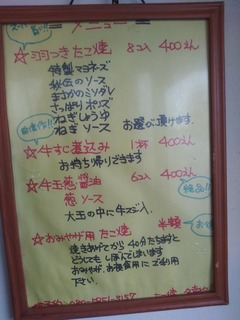 メニュー
☆羽つきたこ焼 8コ入 400えん
特製マヨネーズ
秘伝のソース
まさかのミソダレ
さっぱりポンズ
ねぎしょうゆ
ねぎソース お選び頂けます。
☆牛すじ煮込み 1杯 400えん
お持ち帰りできます
☆牛玉葱醤油 6コ入 400えん
葱ソース
大玉の中に牛スジ入。
☆おみやげ用たこ焼 半額
焼きあげてから40分たちますと
どうしてもしぼんでしまいます
下さい。